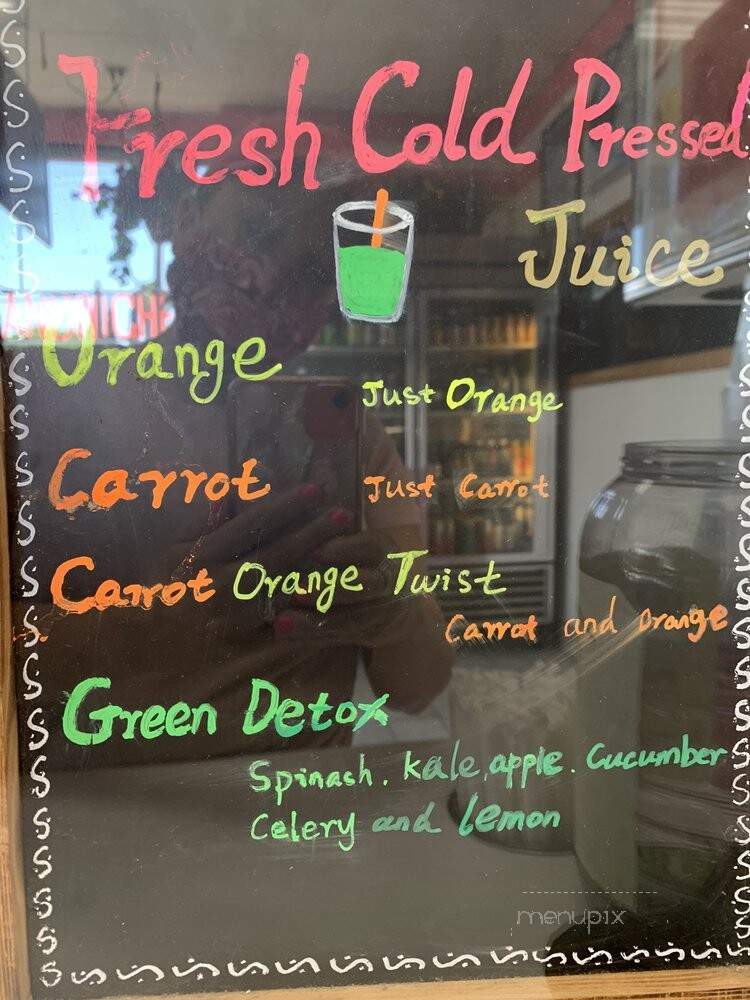 Fresh Cold Pressed
Juice
Orange
Just Orange
Carrot
Just Carrot
Carrot Orange Twist
Carrot and orange
Green Detox
Spinash. kale, apple. Cucumber
Celery and lemon
menupix